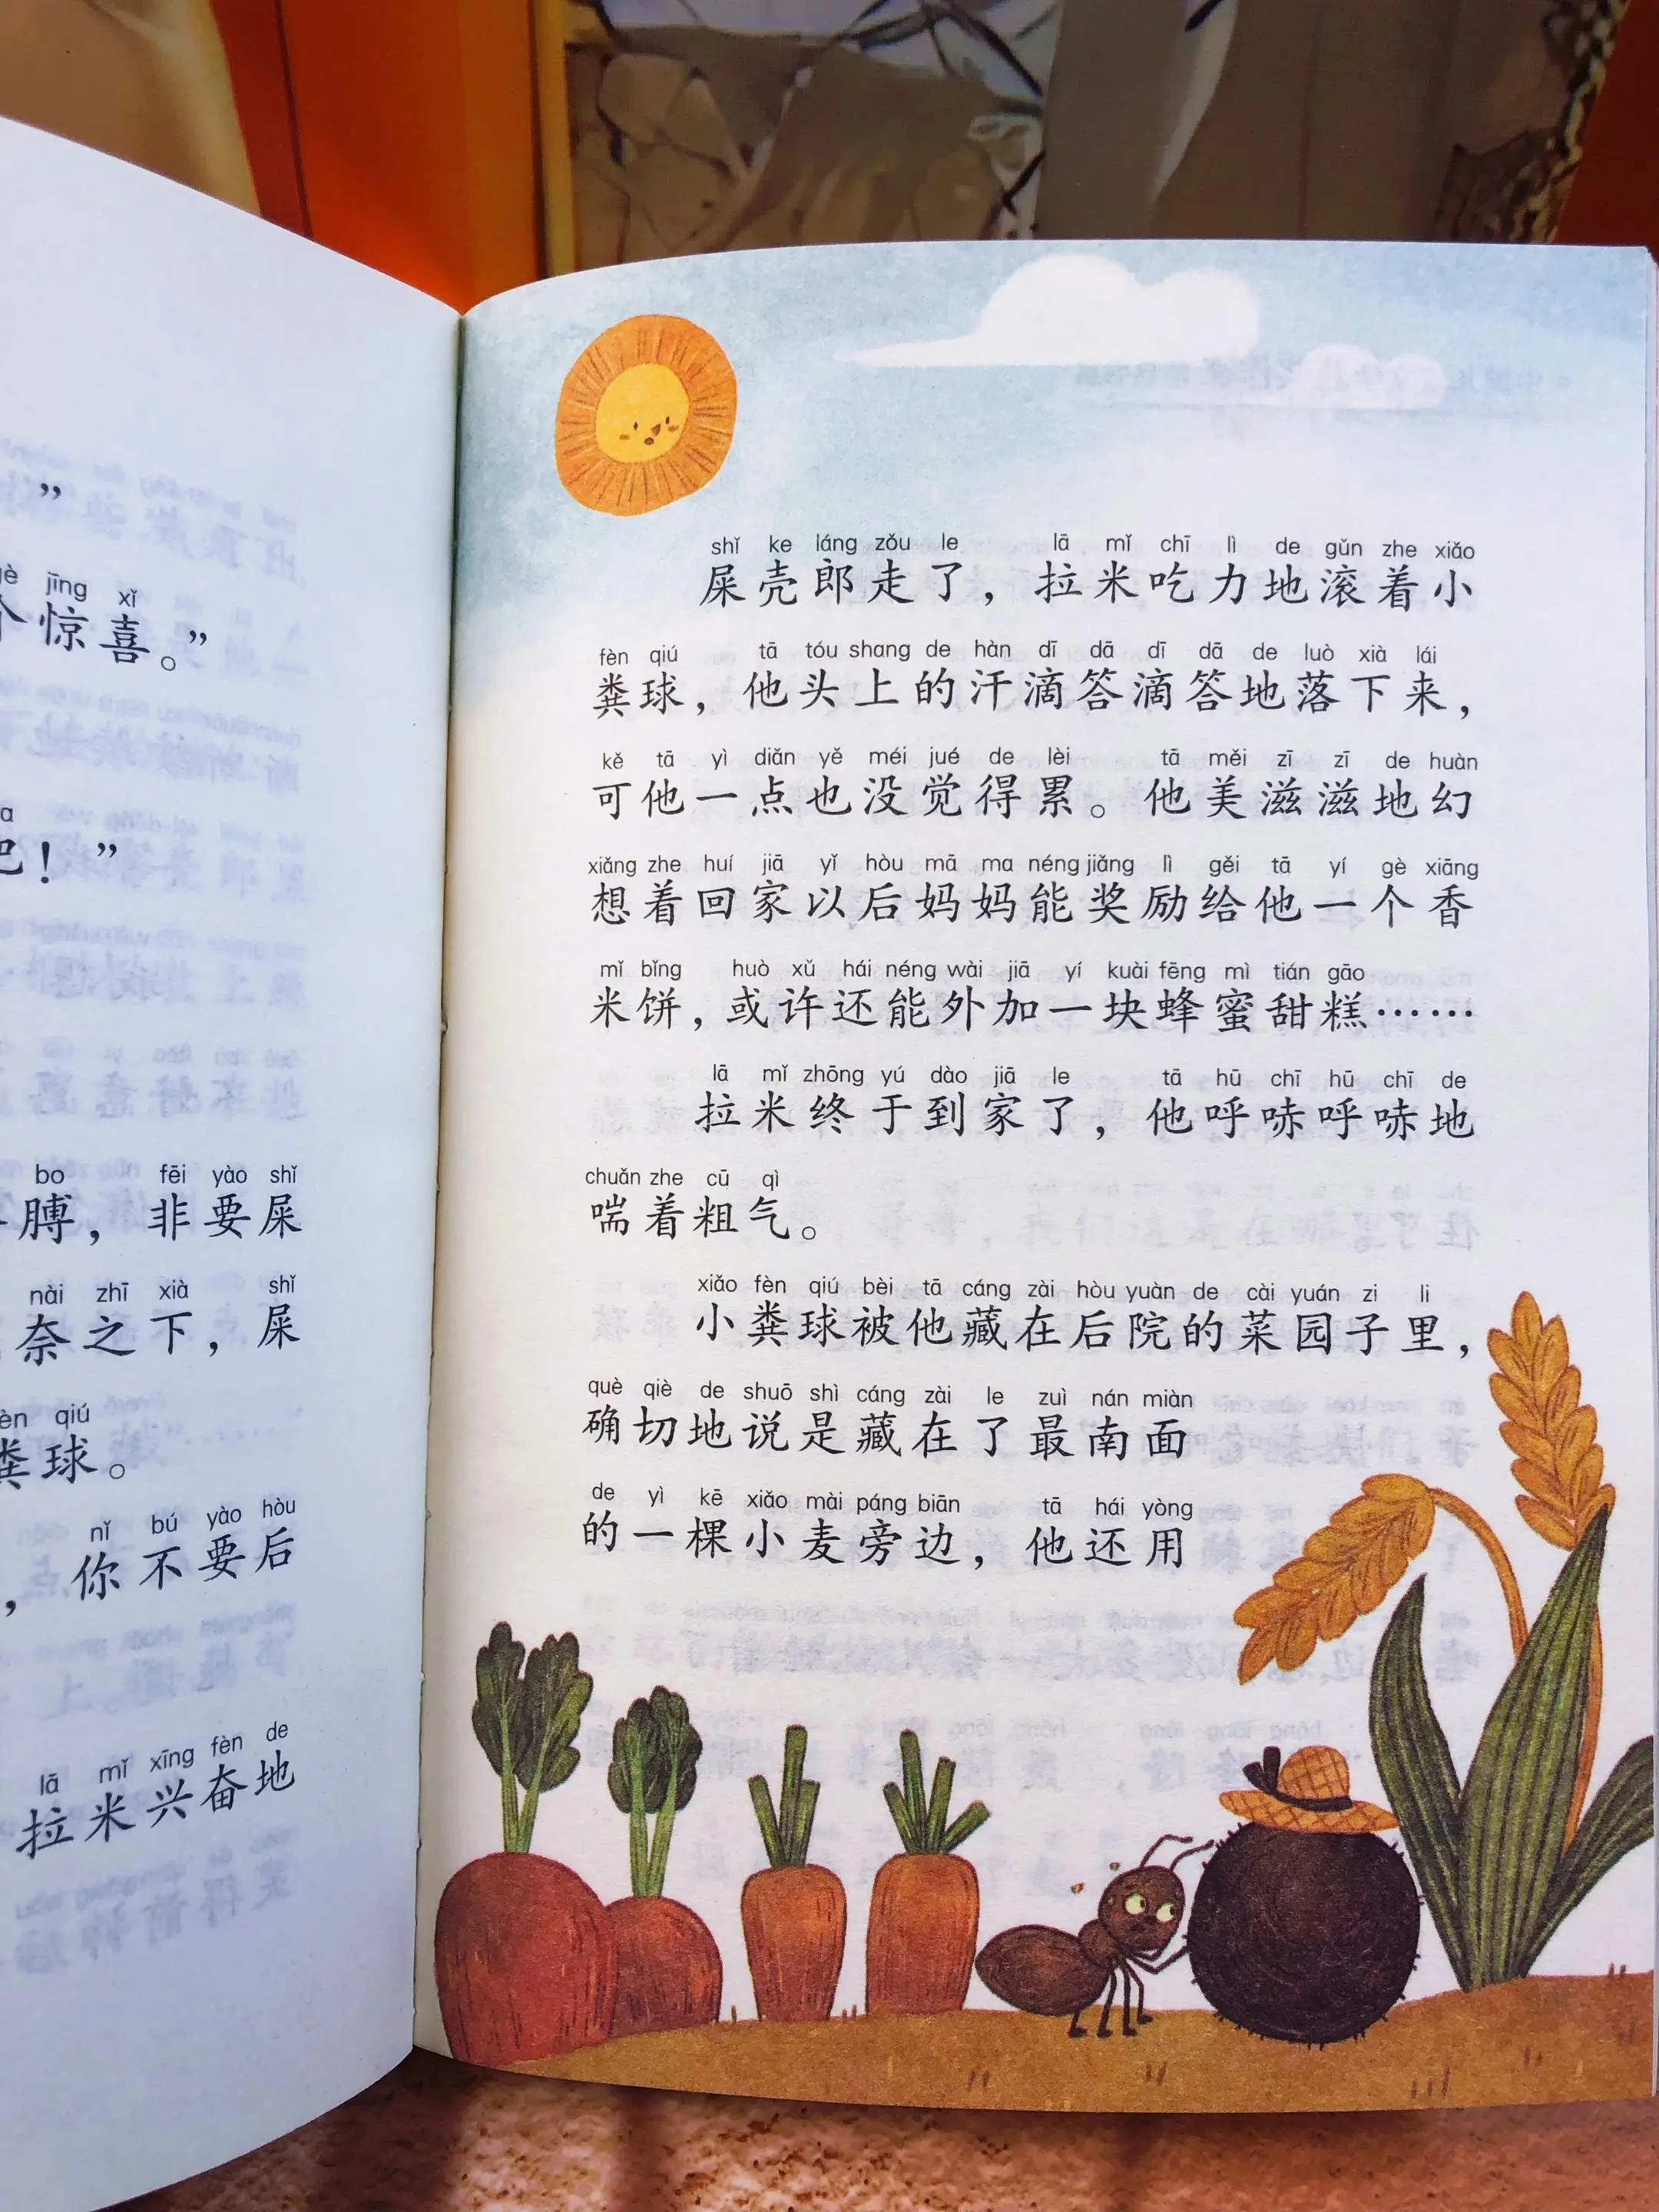 ”
gè jīng xǐ
个惊喜。”
吧！”
bo fēi yào shǐ
膊，非要屎
nài zhī xià shǐ
奈之下，屎
fèn qiú
粪球。
nǐ bú yào hòu
，你不要后
lā mǐ xīng fèn de
拉米兴奋地
shǐ ke láng zǒu le lā mǐ chī lì de gǔn zhe xiǎo
屎壳郎走了，拉米吃力地滚着小
fèn qiú tā tóu shang de hàn dī dā dī dā de luò xià lái
粪球，他头上的汗滴答滴答地落下来，
kě tā yì diǎn yě méi jué de lèi tā měi zī zī de huàn
可他一点也没觉得累。他美滋滋地幻
xiǎng zhe huí jiā yǐ hòu mā ma néng jiǎng lì gěi tā yí gè xiāng
想着回家以后妈妈能奖励给他一个香
mǐ bǐng huò xǔ hái néng wài jiā yí kuài fēng mì tián gāo
米饼，或许还能外加一块蜂蜜甜糕……
lā mǐ zhōng yú dào jiā le tā hū chī hū chī de
拉米终于到家了，他呼哧呼哧地
chuǎn zhe cū qì
喘着粗气。
xiǎo fèn qiú bèi tā cáng zài hòu yuàn de cài yuán zi li
小粪球被他藏在后院的菜园子里，
què qiè de shuō shì cáng zài le zuì nán miàn
确切地说是藏在了最南面
de yì kē xiǎo mài páng biān tā hái yòng
的一棵小麦旁边，他还用